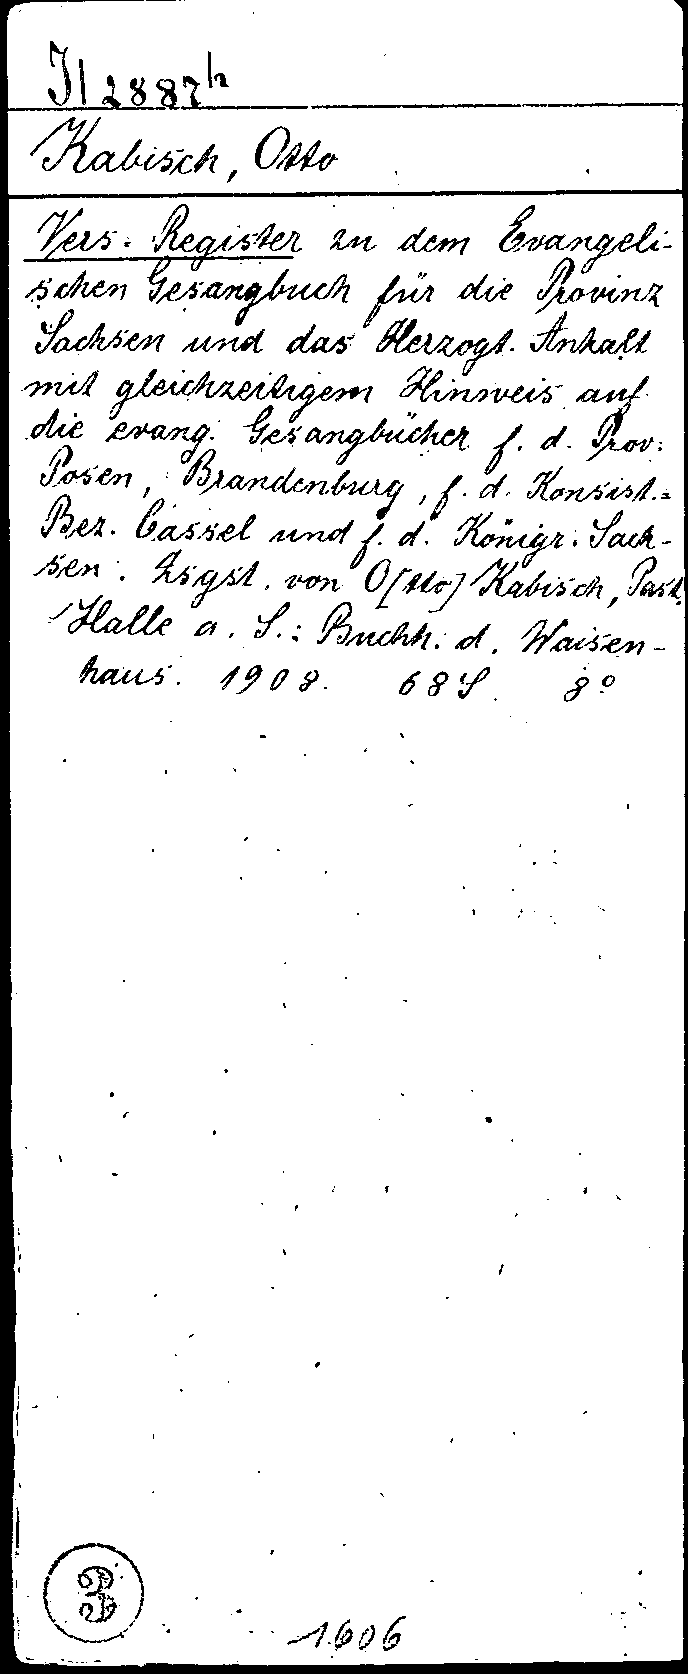 Il 2887 h
Kabisch, Otto
Vers-Register zu dem Evangeli-
schen Gesangbuch für die Provinz
Sachsen und das Herzogt. Anhalt
mit gleichzeitigem Hinweis auf
die evang. Gesangbücher f. d. Prov.
Posen, Brandenburg, f. d. Konsist.-
Bez. Cassel und f. d. Königr. Sach-
sen. Zsgst. von O[tto] Kabisch, Past.
Halle a. S.: Buchh. d. Waisen-
haus. 1908. 68 S. 8°
3
1606